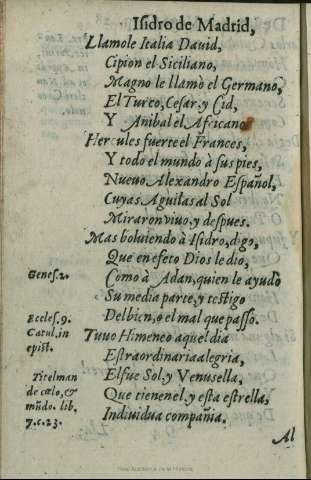 Isidro de Madrid,
Llamole Italia Dauid,
Cipion el Siciliano,
Magno le llamò el Germano,
El Turco, Cesar, y Cid,
Y Anibal el Africano
Hercules fuerte el Frances,
Y todo el mundo à sus pies,
Nueuo Alexandro Español,
Cuyas Aguilas al Sol
Miraron viuo, y despues.
Mas boluiendo à Isidro, digo,
Que en efeto Dios le dio,
Genes. 2.
Como à Adan, quien le ayudò
Su media parte, y testigo
Eccles. 9.
Del bien, o el mal que passo.
Catul. in
epist.
Tuuo Himeneo aquel dia
Estraordinaria alegria,
Titelman
El fue Sol, y Venus ella,
de cælo, &
Que tienen el, y esta estrella,
mũdo. lib.
7. c. 23.
Indiuidua compañia.
Al